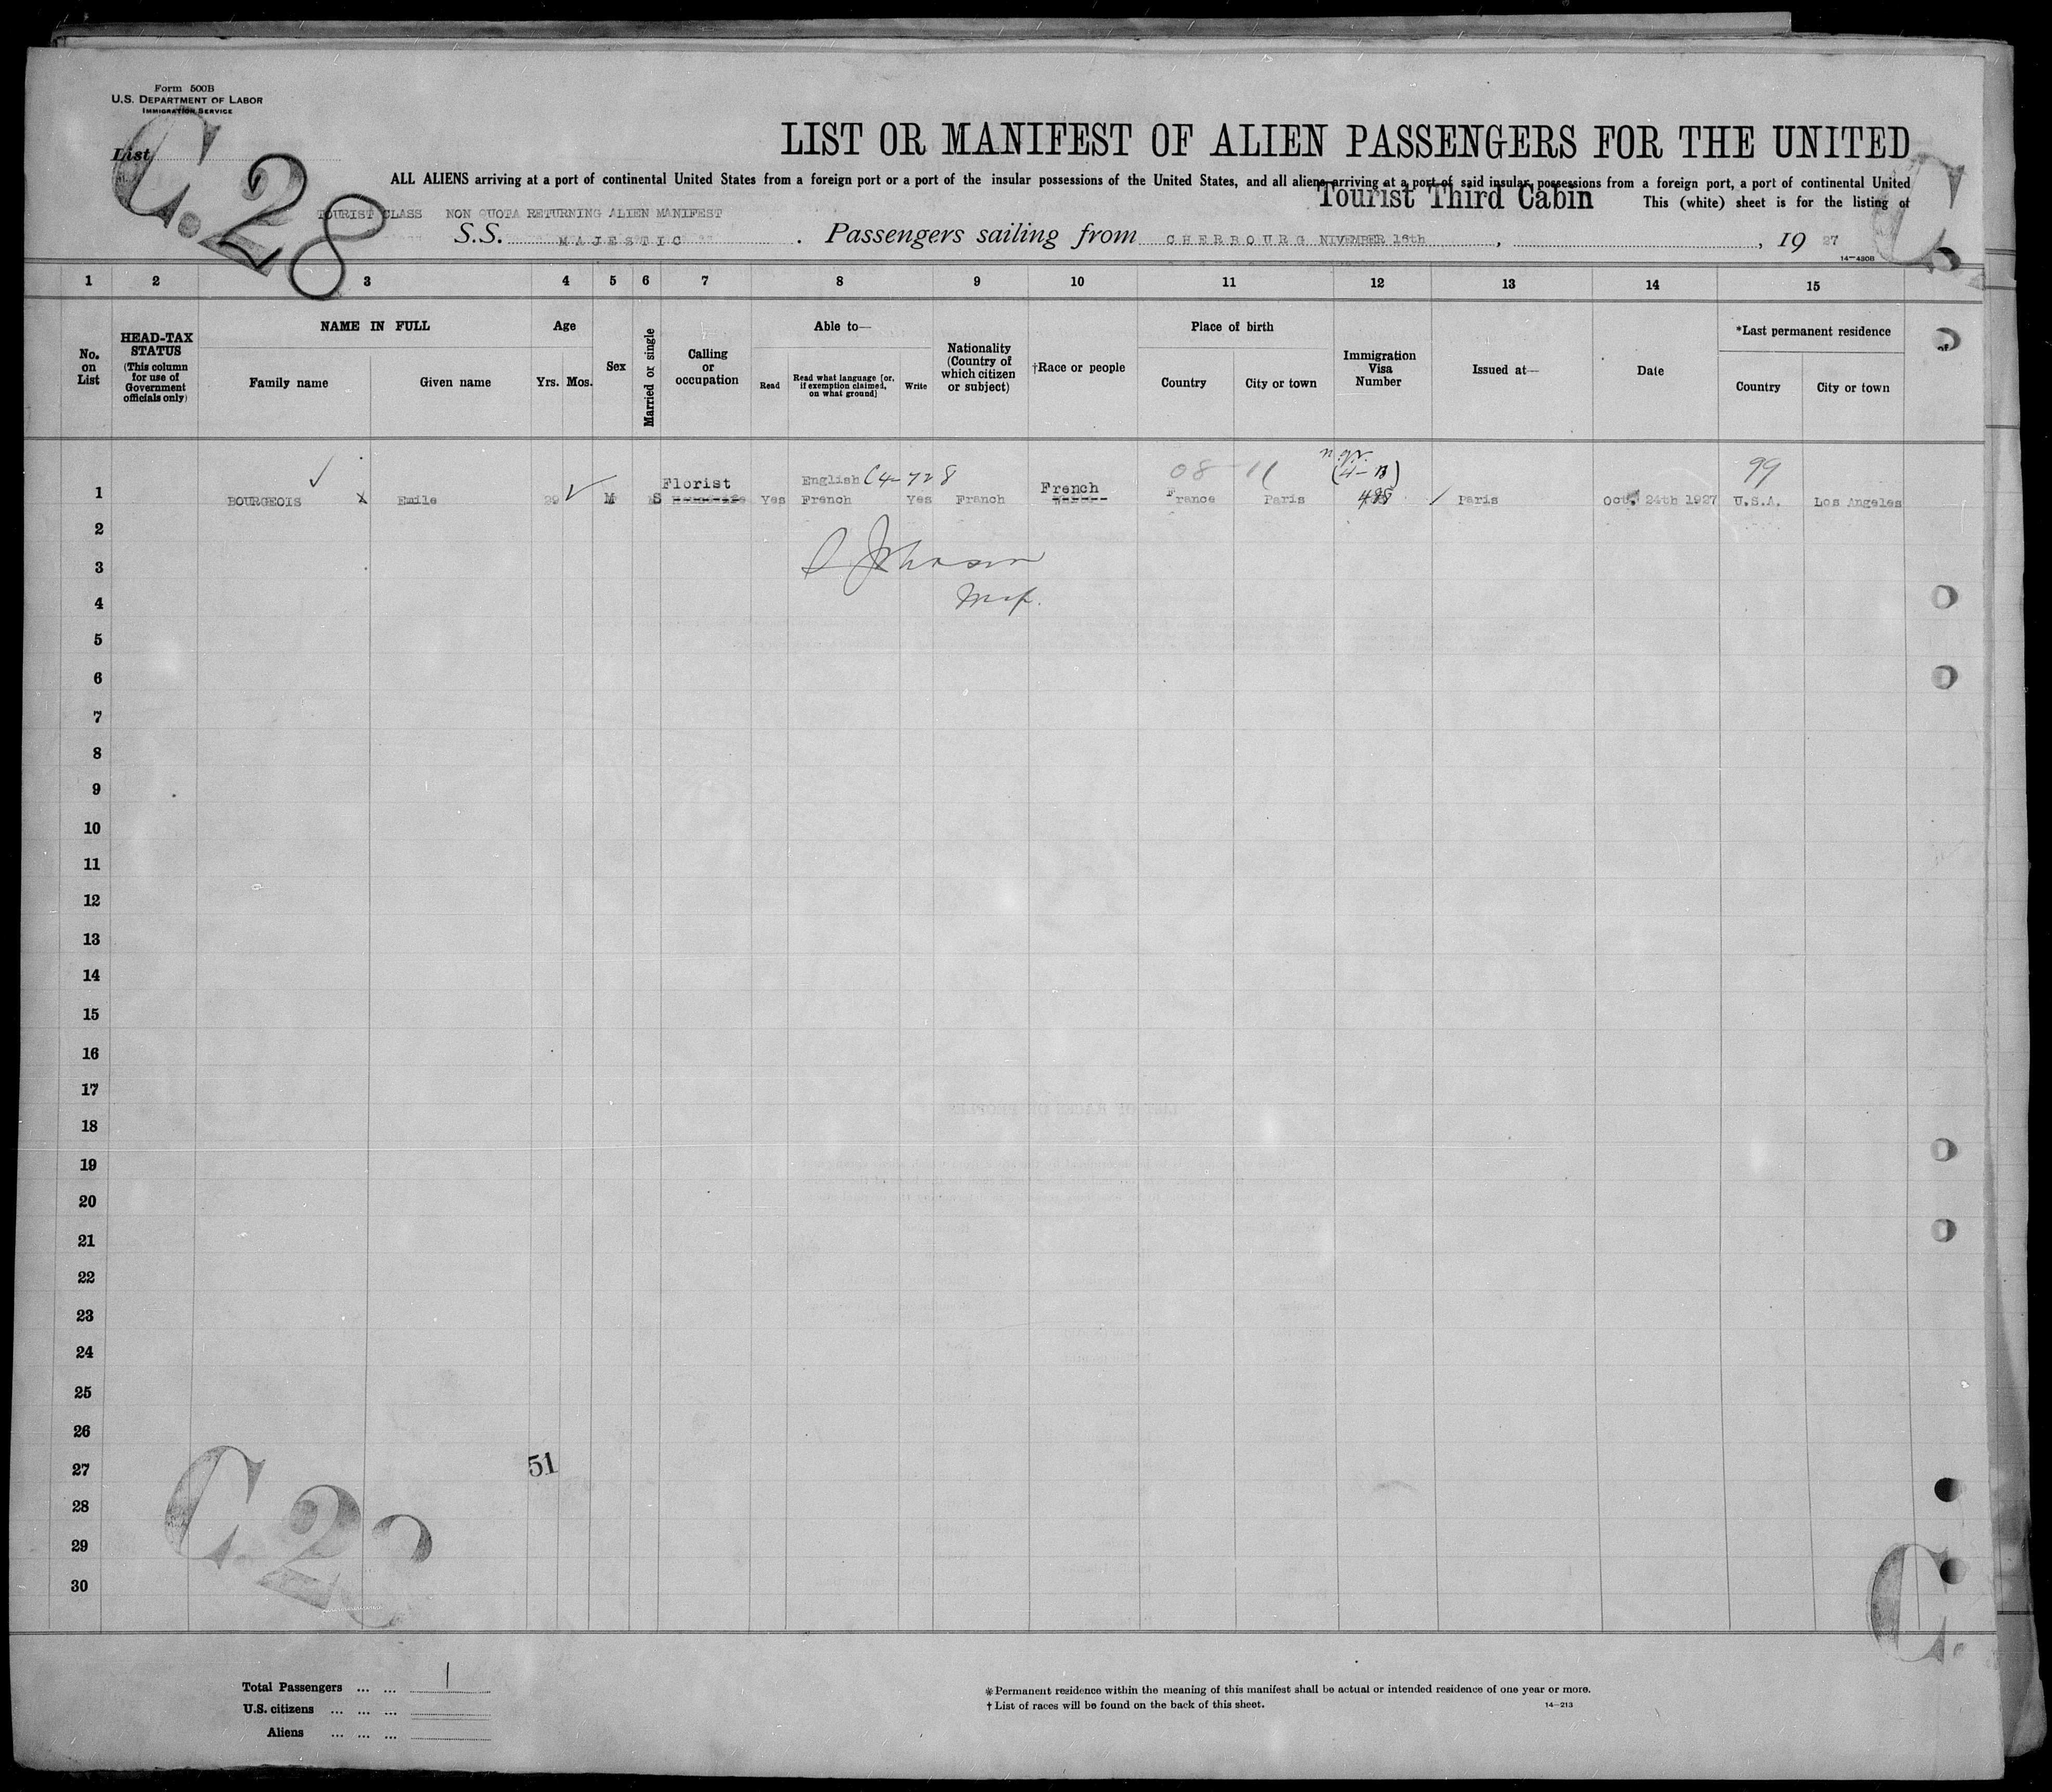 Form 500B
U.S. DEPARTMENT OF LABOR
IMMIGRATION SERVICE
List
C.28
LIST OR MANIFEST OF ALIEN PASSENGERS FOR THE UNITED
ALL ALIENS arriving at a port of continental United States from a foreign port or a port of the insular possessions of the United States, and all aliens arriving at a port of said insular possessions from a foreign port, a port of continental United
Tourist Third Cabin This (white) sheet is for the listing of
TOURIST CLASS NON QUOTA RETURNING ALIEN MANIFEST
S.S. MAJESTIC. Passengers sailing from CHERBOURG NIVEMBER 16th, , 19 27
14-430B
1 2 3 4 5 6 7 8 9 10 11 12 13 14 15
No. on List
HEAD-TAX STATUS (This column for use of Government officials only)
NAME IN FULL
Family name Given name
Age
Yrs. Mos.
Sex
Married or single
Calling or occupation
Able to—
Read Read what language [or, if exemption claimed, on what ground] Write
Nationality (Country of which citizen or subject)
†Race or people
Place of birth
Country City or town
Immigration Visa Number
Issued at—
Date
*Last permanent residence
Country City or town
Florist English (4-728 French 08 11 (4-B) 99
1 BOURGEOIS X Emile 29 M S Yes French Yes Franch France Paris Paris Oct. 24th 1927 U.S.A. Los Angeles
2
Johnson
3
4
5
6
7
8
9
10
11
12
13
14
15
16
17
18
19
20
21
22
23
24
25
26
27
51
28
29
30
C.28
C.
Total Passengers ... ... 1
U.S. citizens ... ... ...
Aliens ... ... ...
*Permanent residence within the meaning of this manifest shall be actual or intended residence of one year or more.
† List of races will be found on the back of this sheet. 14-213